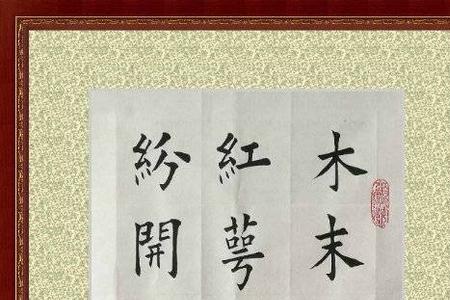 木末
紅萼
紛開